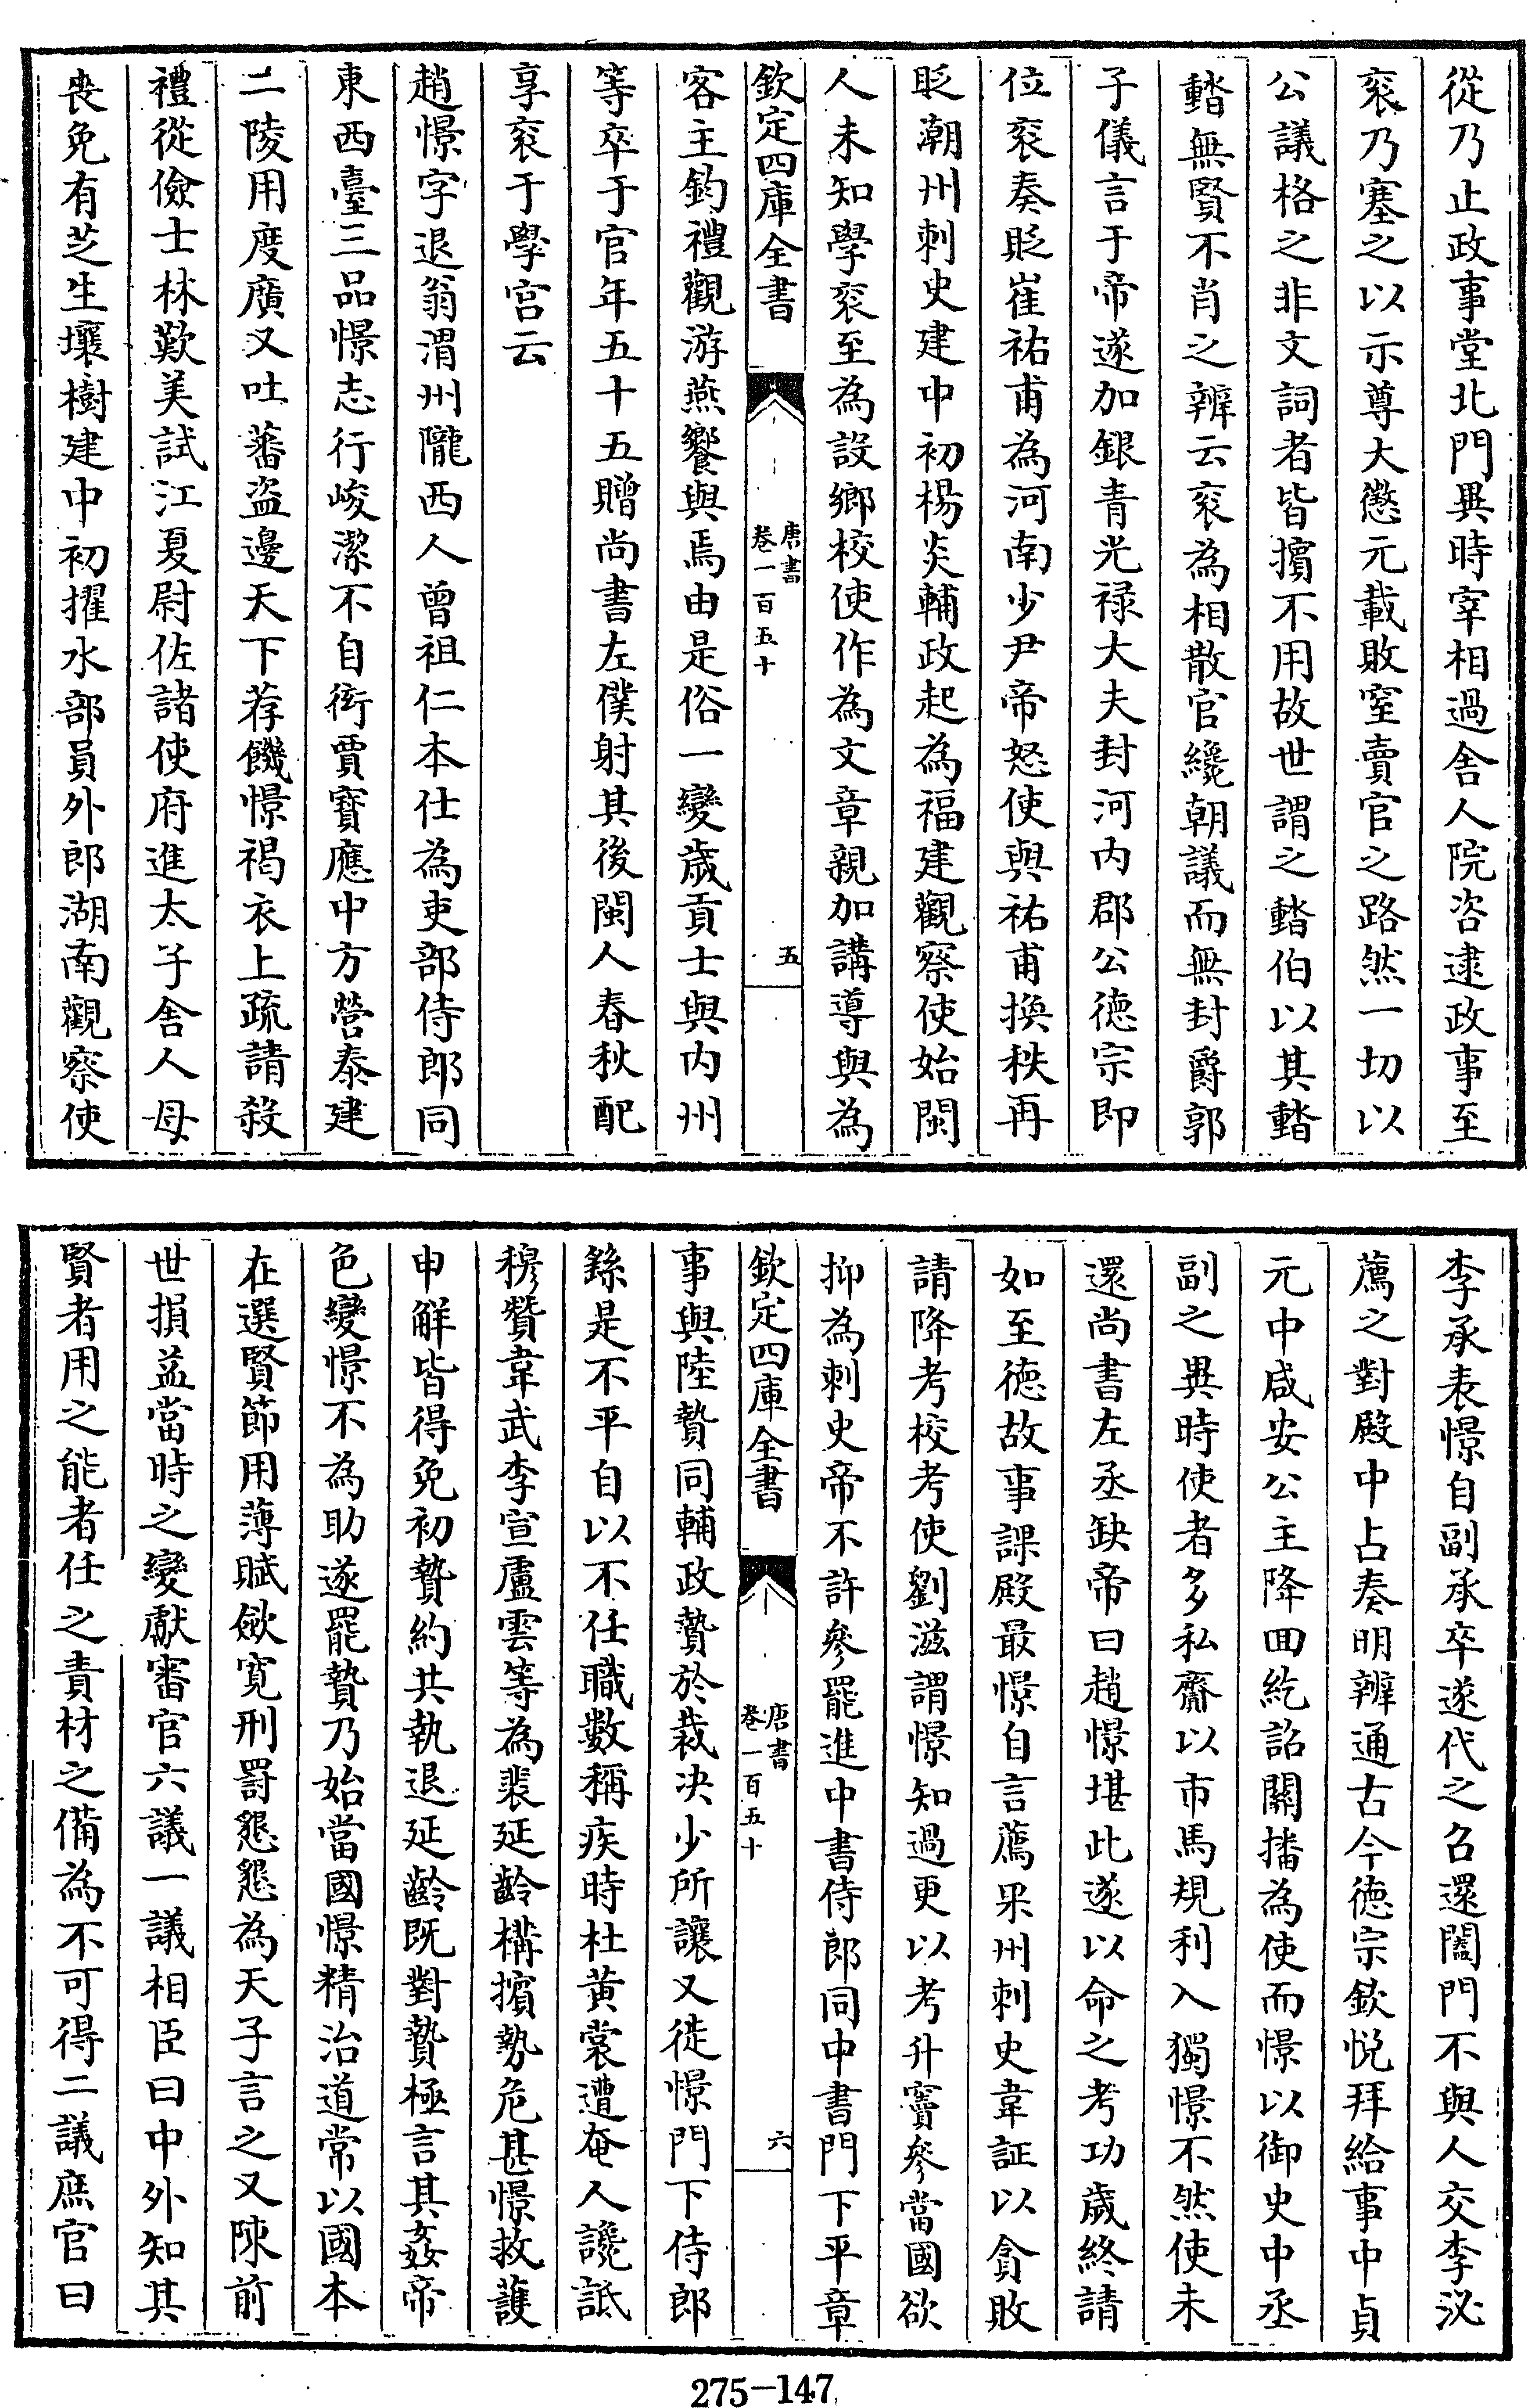 從乃止政事堂北門異時宰相過舍人院咨逮政事至
衮乃塞之以示尊大懲元載敗窒賣官之路然一切以
公議格之非文詞者皆擯不用故世謂之䵬伯以其䵬
䵬無賢不肖之辨云衮為相散官纔朝議而無封爵郭
子儀言于帝遂加銀青光禄大夫封河内郡公德宗即
位衮奏貶崔祐甫為河南少尹帝怒使與祐甫換秩再
貶潮州刺史建中初楊炎輔政起為福建觀察使始閩
人未知學衮至為設鄉校使作為文章親加講導與為
欽定四庫全書
唐書
卷一百五十
五
客主鈞禮觀游燕饗與焉由是俗一變歲貢士與内州
等卒于官年五十五贈尚書左僕射其後閩人春秋配
享衮于學宫云
趙憬字退翁渭州隴西人曾祖仁本仕為吏部侍郎同
東西臺三品憬志行峻潔不自衒賈寳應中方營泰建
二陵用度廣又吐蕃盗邊天下荐饑憬褐衣上疏請殺
禮從儉士林歎美試江夏尉佐諸使府進太子舍人母
喪免有芝生壤樹建中初擢水部員外郎湖南觀察使
李承表憬自副承卒遂代之召還闔門不與人交李泌
薦之對殿中占奏明辨通古今德宗欽悦拜給事中貞
元中咸安公主降回紇詔關播為使而憬以御史中丞
副之異時使者多私齎以市馬規利入獨憬不然使未
還尚書左丞缺帝曰趙憬堪此遂以命之考功歲終請
如至德故事課殿最憬自言薦果州刺史韋証以貪敗
請降考校考使劉滋謂憬知過更以考升竇參當國欲
抑為刺史帝不許參罷進中書侍郎同中書門下平章
欽定四庫全書
唐書
卷一百五十
六
事與陸贄同輔政贄於裁决少所讓又徙憬門下侍郎
繇是不平自以不任職數稱疾時杜黄裳遭奄人讒詆
穆贊韋武李宣盧雲等為裴延齡構擯勢危甚憬救護
申解皆得免初贄約共執退延齡既對贄極言其姦帝
色變憬不為助遂罷贄乃始當國憬精治道常以國本
在選賢節用薄賦歛寛刑罸懇懇為天子言之又陳前
世損益當時之變獻審官六議一議相臣曰中外知其
賢者用之能者任之責材之備為不可得二議庶官曰
275-147